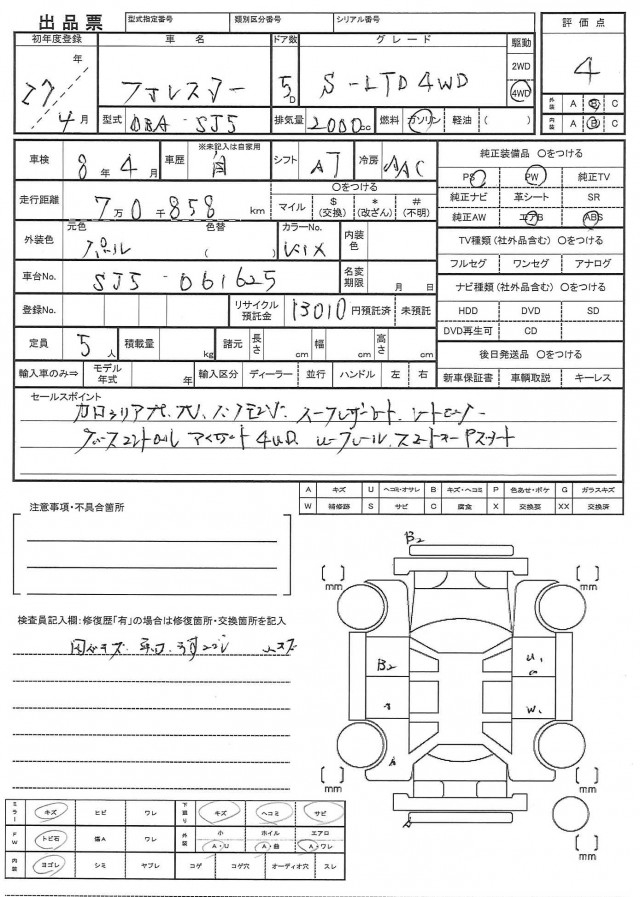 出品票 型式指定番号 類別区分番号 シリアル番号
初年度登録 車名 ドア数 グレード 駆動 評価点
27年 4月 フォレスター 5D S-LTD 4WD 2WD 4WD 4
型式 DBA-SJ5 排気量 2000cc 燃料 ガソリン 軽油 ( )
外装 A B C
内装 A B C
車検 8年4月 車歴 ※未記入は自家用 自 シフト AT 冷房 AAC
純正装備品 〇をつける
PS PW 純正TV
純正ナビ 革シート SR
純正AW エアB ABS
走行距離 7万0千858km 〇をつける
マイル $(交換) *(改ざん) #(不明)
外装色 元色 パール 色替 ( ) カラーNo. 内装色
TV種類(社外品含む) 〇をつける
フルセグ ワンセグ アナログ
車台No. SJ5-061625 名変期限 月 日
ナビ種類(社外品含む) 〇をつける
HDD DVD SD
DVD再生可 CD
登録No. リサイクル預託金 13010円預託済 未預託
定員 5人 積載量 kg 諸元 長さ cm 幅 cm 高さ cm
後日発送品 〇をつける
新車保証書 車輌取説 キーレス
輸入車のみ⇒ モデル年式 年 輸入区分 ディーラー 並行 ハンドル 左 右
セールスポイント
アイサイト 4WD ルーフレール
A キズ U ヘコミ・オサレ B キズ・ヘコミ P 色あせ・ボケ G ガラスキズ
W 補修跡 S サビ C 腐食 X 交換要 XX 交換済
注意事項・不具合箇所
検査員記入欄:修復歴「有」の場合は修復箇所・交換箇所を記入
B2
mm mm
B2 U1
W1
mm mm
mm
ミラー キズ ヒビ ワレ 下廻り キズ ヘコミ サビ
FW トビ石 傷A ワレ 外装 小 A・U ホイル A・曲 エアロ A・ワレ
内装 ヨゴレ シミ ヤブレ コゲ コゲ穴 オーディオ穴 スレ